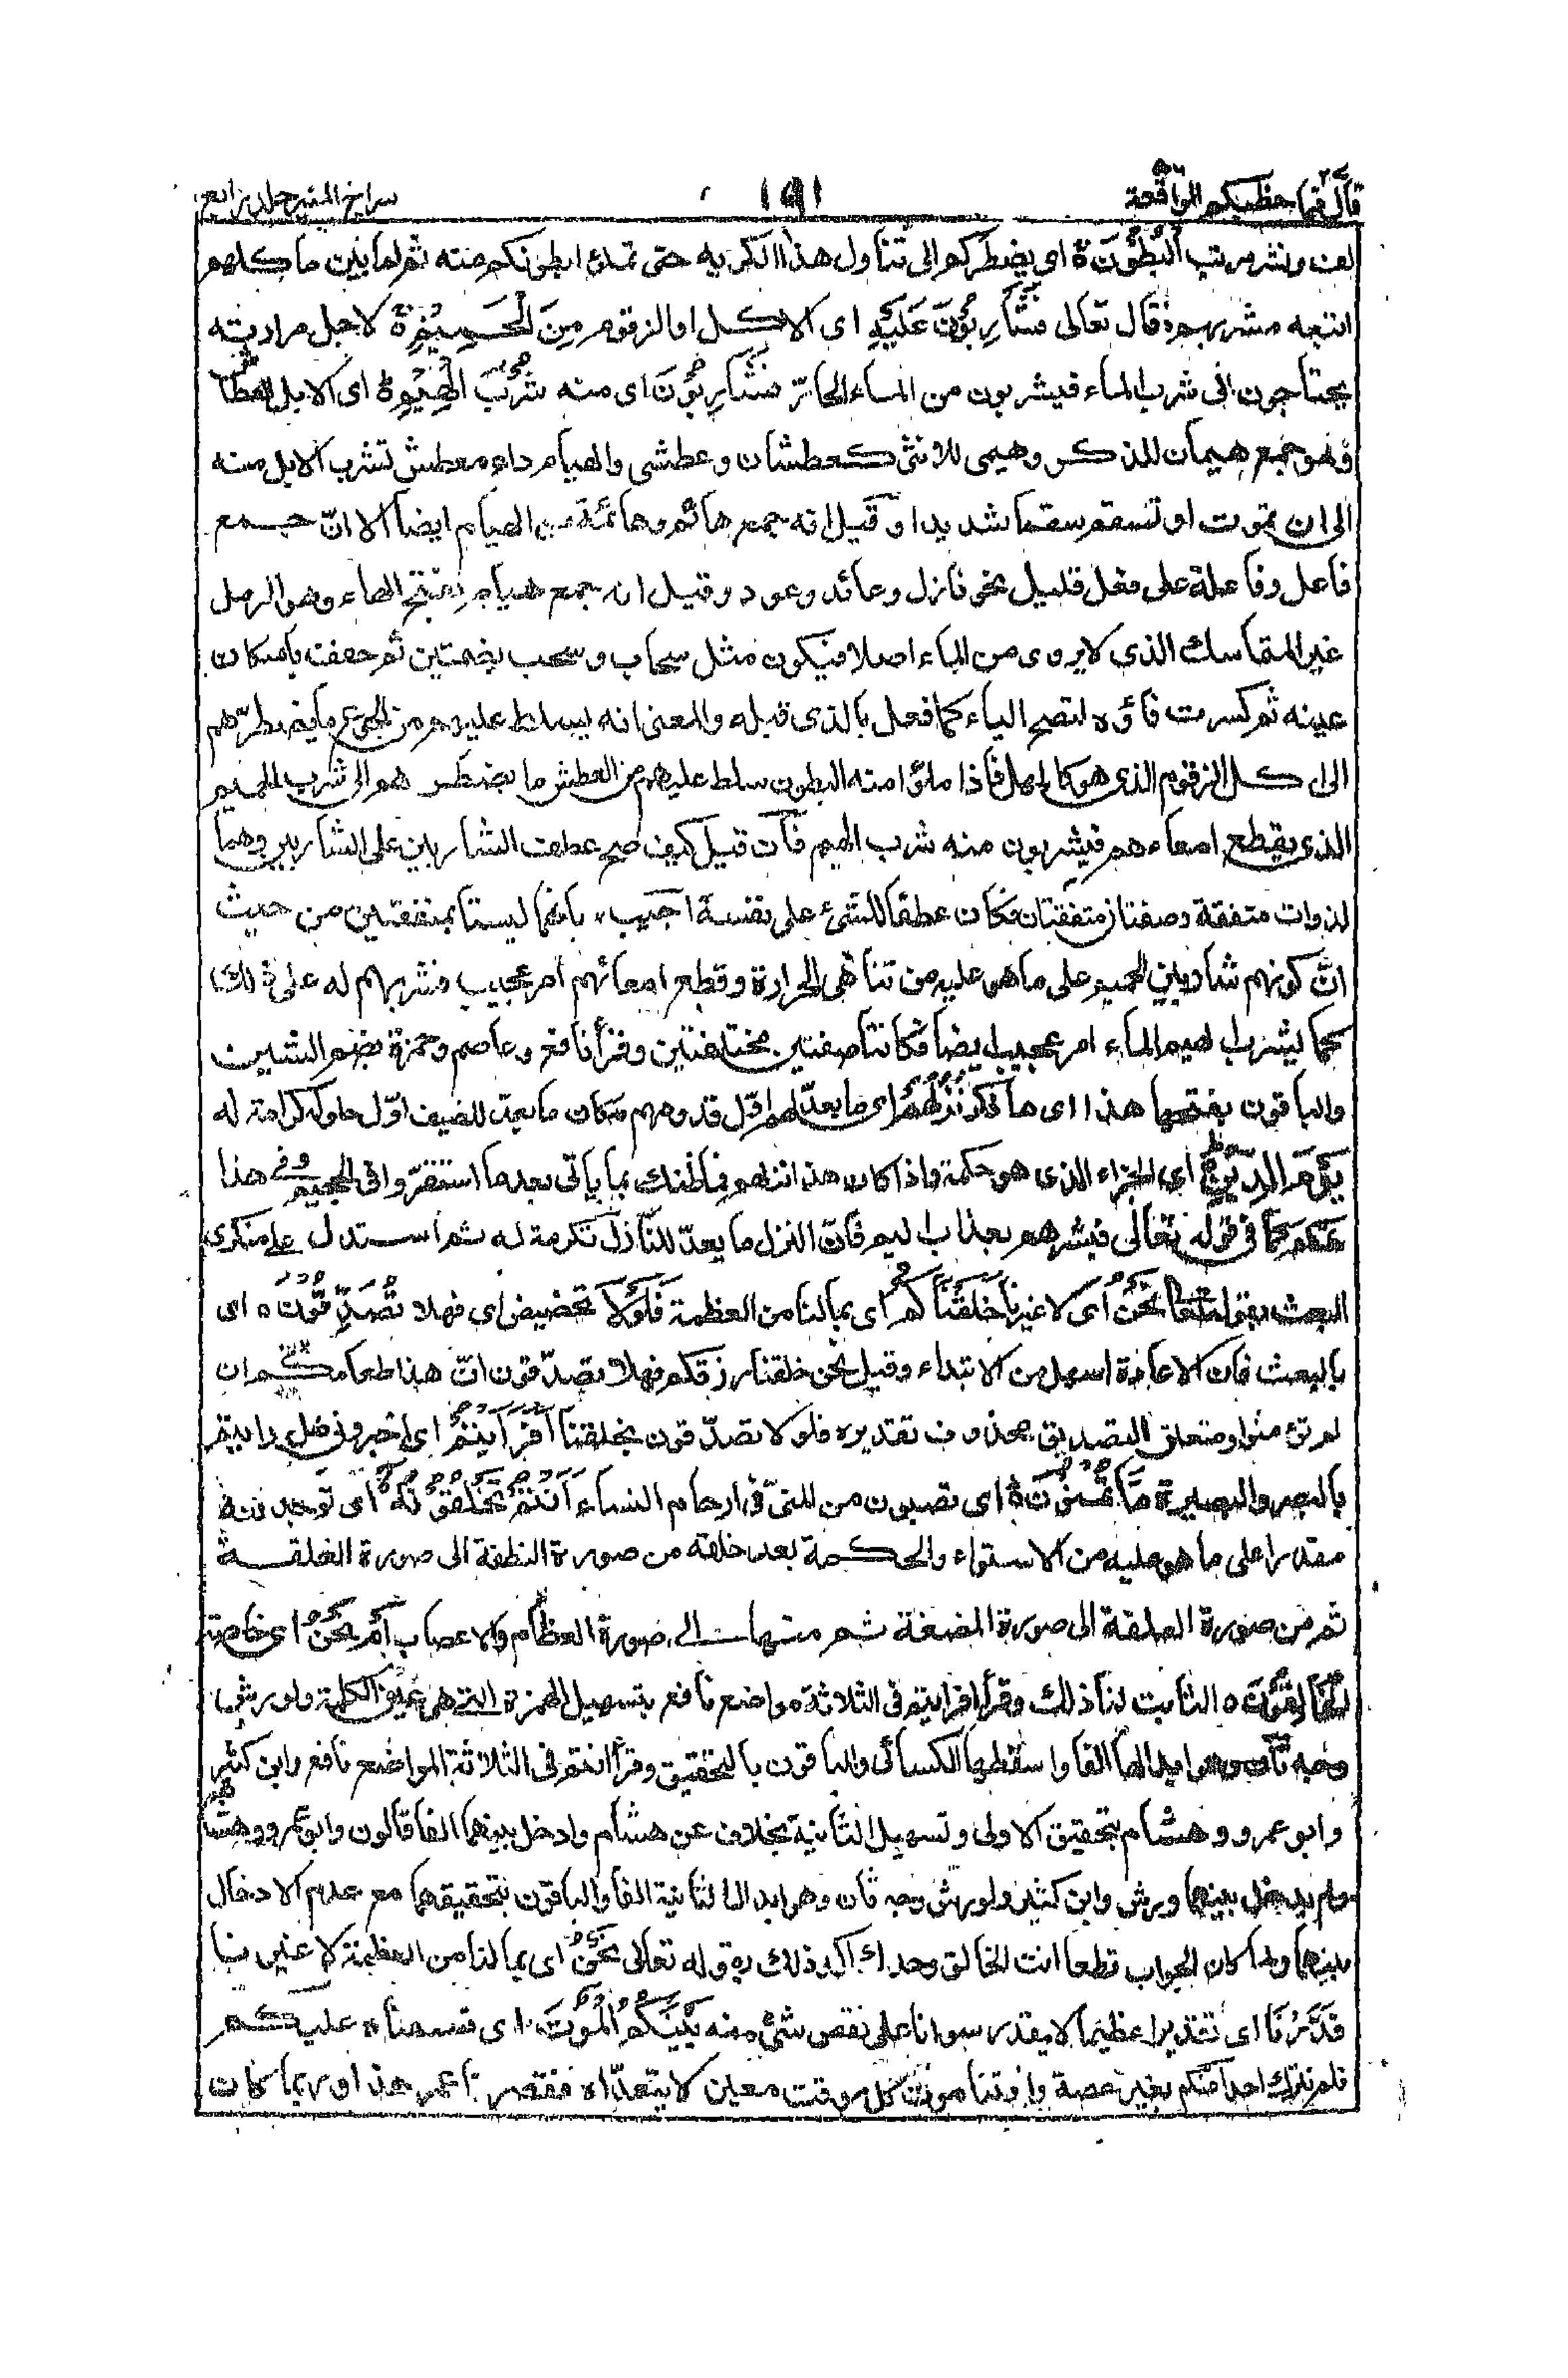 قال فما خطبكم الواقعة ١٩١ سراج المنير جلد رابع
لف ونشر مرتب الْبُطُوْنَ ه اى يضطركم الى تناول هذا الكريه حتى تملؤا بطونكم منه ثم لما بين ماكلهم
اتبعه مشربهم فقال تعالى فَشَارِبُوْنَ عَلَيْهِ اى الاكل او الزقوم مِنَ الْحَمِيْمِ ه لاجل مرارته
يحتاجون الى شرب الماء فيشربون من الماء الحار فَشَارِبُوْنَ اى منه شُرْبَ الْهِيْمِ ه اى الابل العطاش
وهو جمع هيمان للذكر وهيمى للانثى كعطشان وعطشى والهيام داء معطش تشرب الابل منه
الى ان تموت او تسقم سقما شديدا وقيل انه جمع هائم وهائمة من الهيام ايضا الا انّ جمع
فاعل وفاعلة على فعل قليل نحو نازل وعائد وعود وقيل انه جمع هيام بفتح الهاء وهو الرمل
غير المتماسك الذى لا يروى من الماء اصلا فيكون مثل سحاب وسحب بضمتين ثم خففت باسكان
عينه ثم كسرت فاؤه لتصح الياء كما فعل بالذى قبله والمعنى انه يسلط عليهم من الجوع ما يضطرّهم
الى اكل الزقوم الذى هو كالمهل فاذا ملؤا منه البطون سلط عليهم من العطش ما يضطرهم الى شرب الحميم
الذى يقطع امعاءهم فيشربون منه شرب الهيم فان قيل كيف صح عطف الشاربين على الشاربين وهما
لذوات متفقة وصفتان متفقتان فكان عطفا للشئ على نفسه اجيب بانهما ليستا بمتفقتين من حيث
انّ كونهم شاربين للحميم على ما هو عليه من تناهى الحرارة وقطع امعائهم امر عجيب وشربهم له على ذلك
كما يشرب الهيم الماء امر عجيب ايضا فكانتا صفتين مختلفتين وقرأ نافع وعاصم وحمزة بضم الشين
والباقون بفتحها هذا اى ما ذكر نُزُلُهُمْ اى ما يعدّ لهم اوّل قدومهم مكان ما يعدّ للضيف اوّل حلوله كرامة له
يَوْمَ الدِّيْنِ ه اى الجزاء الذى هو حكمة واذا كان هذا نزلهم فما ظنك بما ياتى بعد ما استقرّوا فى الجحيم وفى هذا
تهكم كما فى قوله تعالى فبشرهم بعذاب اليم فانّ النزل ما يعدّ للنازل تكرمة له ثم استدل على منكرى
البعث بقوله تعالى نَحْنُ اى لا غيرنا خَلَقْنَاكُمْ اى بما لنا من العظمة فَلَوْلَا تحضيض اى فهلا تُصَدِّقُوْنَ ه اى
بالبعث فان الاعادة اسهل من الابتداء وقيل نحن خلقنا رزقكم فهلا تصدّقون انّ هذا طعامكم ان
لم تؤمنوا ومتعلق التصديق محذوف تقديره فلولا تصدّقون بخلقنا أَفَرَأَيْتُمْ اى اخبرونى هل رايتم
بالبصر والبصيرة مَّا تُمْنُوْنَ ه اى تصبون من المنىّ فى ارحام النساء أَأَنْتُمْ تَخْلُقُوْنَهُ اى توجدونه
مقدرا على ما هو عليه من الاستواء والحكمة بعد خلقه من صورة النطفة الى صورة العلقة
ثم من صورة العلقة الى صورة المضغة ثم منها الى صورة العظام والاعصاب أَمْ نَحْنُ اى خاصة
الْخَالِقُوْنَ ه الثابت لنا ذلك وقرأ افرايتم فى الثلاثة مواضع نافع بتسهيل الهمزة التى هى عين الكلمة ولورش
وجه ثان وهو ابدالها الفا واسقطها الكسائى والباقون بالتحقيق وقرأ أانتم فى الثلاثة المواضع نافع وابن كثير
وابو عمرو وهشام بتحقيق الاولى وتسهيل الثانية بخلاف عن هشام وادخل بينهما الفا قالون وابو عمرو وهشام
ولم يدخل بينهما ورش وابن كثير ولورش وجه ثان وهو ابدال الثانية الفا والباقون بتحقيقهما مع عدم الادخال
بينهما ولما كان الجواب قطعا انت الخالق وحدك اكد ذلك بقوله تعالى نَحْنُ اى بما لنا من العظمة لا غيرنا
قَدَّرْنَا اى تقديرا عظيما لا يقدر سوانا على نقص شئ منه بَيْنَكُمُ الْمَوْتَ اى قسمناه عليكم
فلم نترك احدا منكم بغير حصة واقتنا موت كل بوقت معين لا يتعدّاه فقصر عمر هذا وربما كان